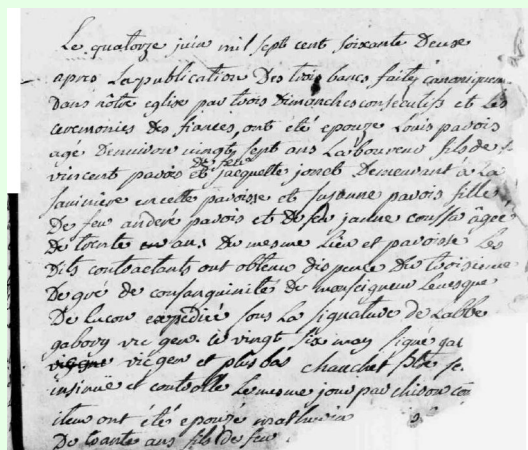 Le quatorze juin mil sept cent soixante Deuse
apres La publication Des trois bancs faits canoniquem
Dans nôtre eglise par trois Dimanches consecutifs et Les
ceremonies des fiancés, ont été epouze Louis pavois
agé Denviron vingt sept ans Laboureur fils de
de feue
vincent pavois et jacquette Demeurant à La
en cette paroisse et susanne pavois fille
De feu andere pavois et De feu âgée
De trente ans Du mesme Lieu et paroisse Les
Dits contractants ont obtenu dispence Du troisieme
Degré de consanguinité De monseigneur Levesque
De Lucon expédiée sous La signature de Labbé
gabory vic gen. Le vingt six may signé ga
vic gen et plus bas chauchet
insinué et controllé Le mesme jour par
item ont été epouze mathurin
De trante ans fils de feu